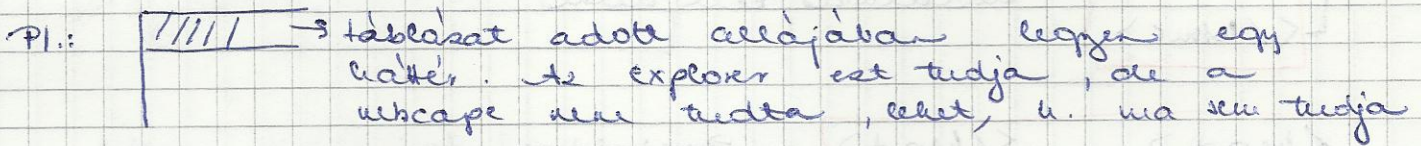 Pl.: → táblázat adott cellájában legyen egy
háttér. Az explorer ezt tudja, de a
netscape nem tudta, lehet, h. ma sem tudja